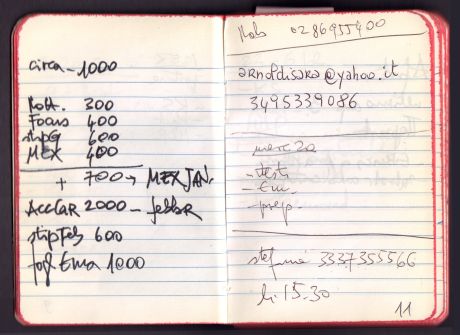 circa - 1000
Rott. 300
Focus 400
stipG 600
MEX 400
+ 700 → MEX JAN.
AccCAR 2000 - febbR
stipFeb 600
fogl Ema 1000
Rob 0286955400
arnoldisara@yahoo.it
3495339086
merc 20
- testi
- Em.
- prep.
stefania 3337355566
h. 15.30
11